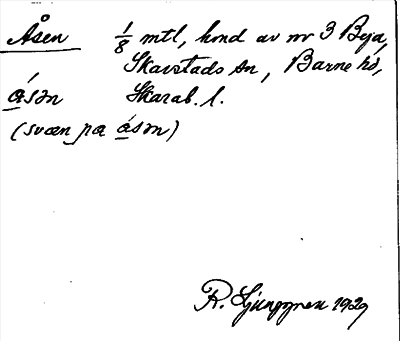 Åsen 1/8 mtl, hmd av nr 3 Beja,
Skarstads sn, Barne hd,
ásən Skarab. l.
(svæn pa ásən)
R. Ljunggren 1929